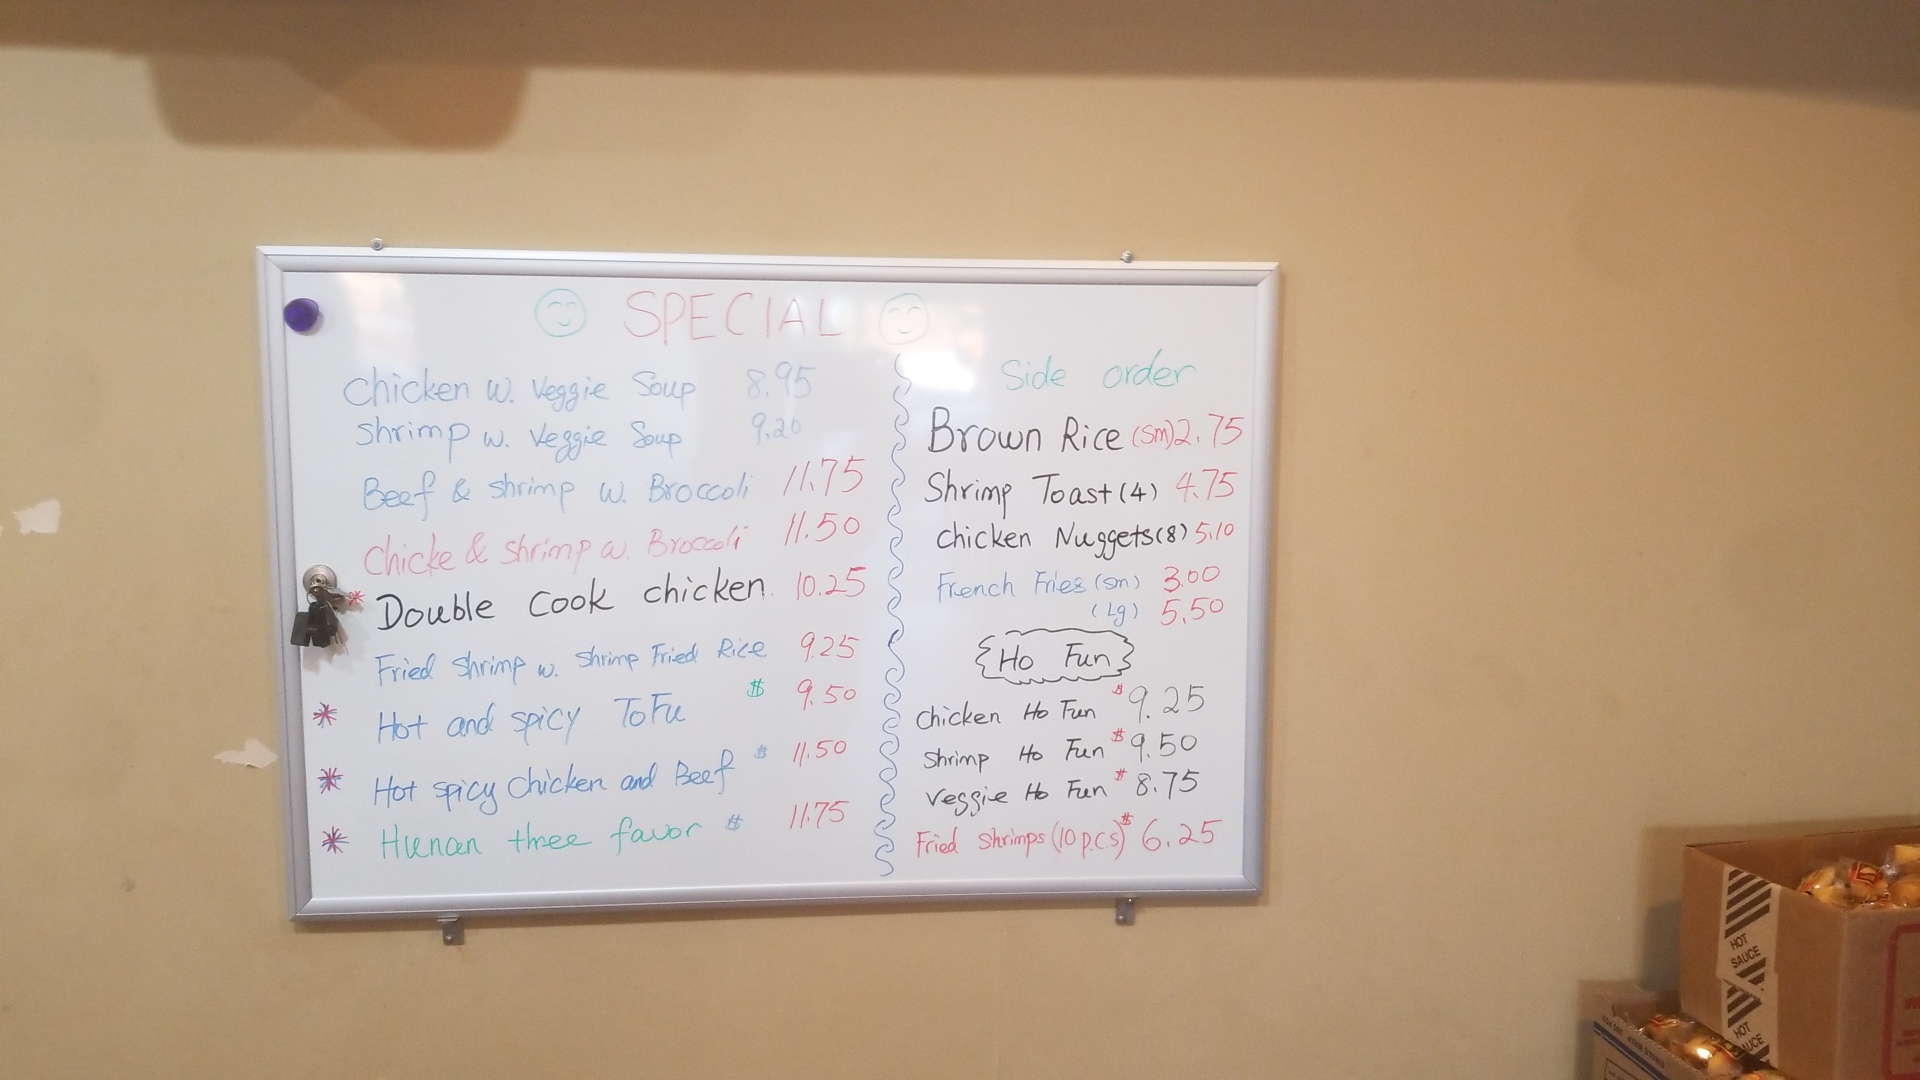 SPECIAL
Chicken w. Veggie Soup 8.95
Shrimp w. Veggie Soup 9.20
Beef & shrimp w. Broccoli 11.75
Chicke & shrimp w. Broccoli 11.50
* Double Cook chicken 10.25
Fried shrimp w. Shrimp Fried Rice 9.25
* Hot and spicy ToFu $ 9.50
* Hot spicy Chicken and Beef $ 11.50
* Hunan three favor $ 11.75
Side order
Brown Rice (sm) 2.75
Shrimp Toast (4) 4.75
chicken Nuggets (8) 5.10
French Fries (sm) 3.00
(Lg) 5.50
Ho Fun
chicken Ho Fun $ 9.25
Shrimp Ho Fun $ 9.50
Veggie Ho Fun $ 8.75
Fried Shrimps (10 p.c.s) $ 6.25
HOT
SAUCE
HOT